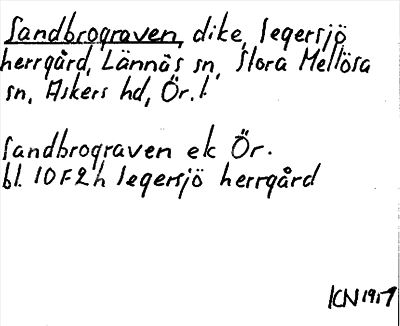 Sandbrograven, dike, Segersjö
herrgård, Lännäs sn, Stora Mellösa
sn, Askers hd, Ör. l
Sandbrograven ek Ör.
bl. 10F2h Segersjö herrgård
KN 1917